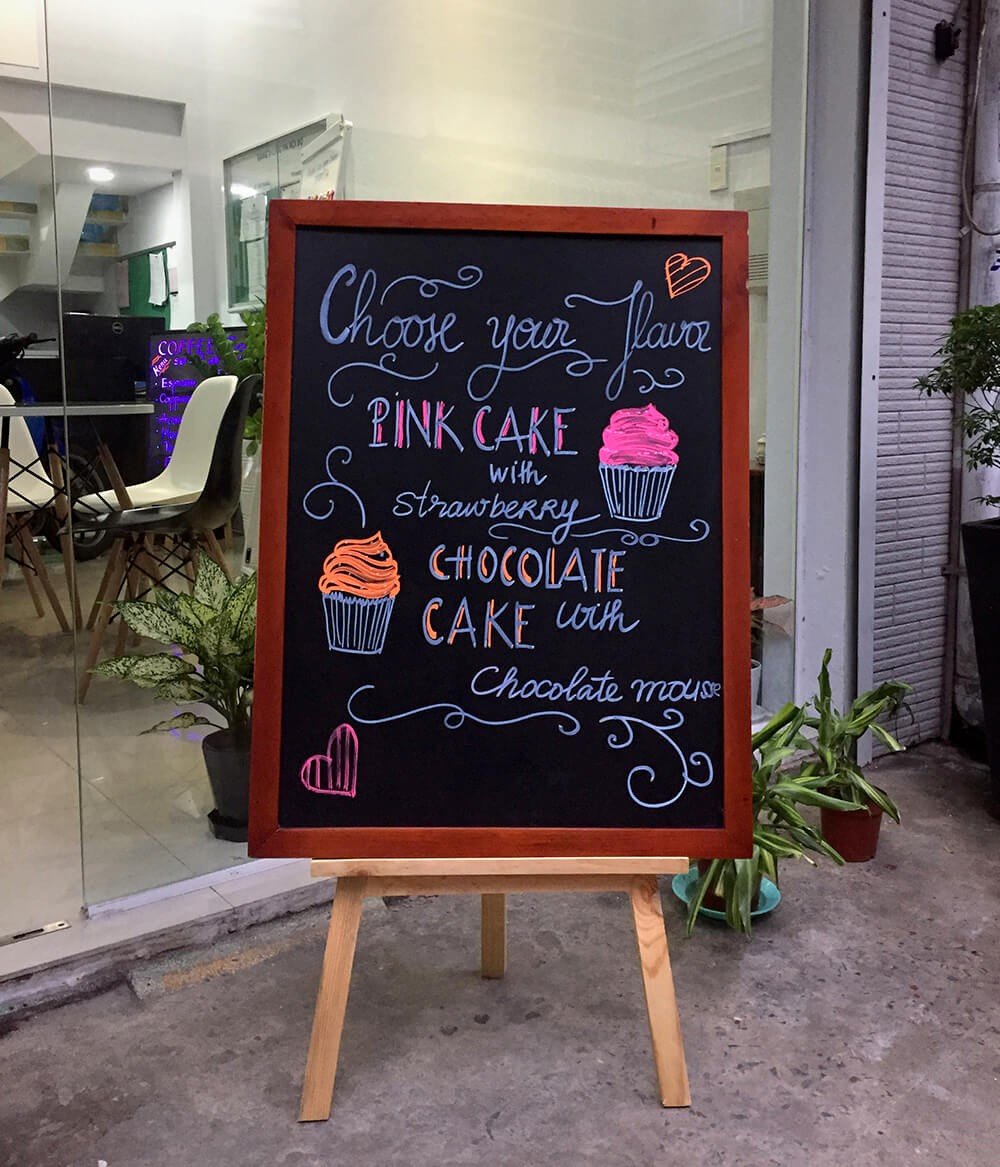 Choose your flavor
PINK CAKE
with
strawberry
CHOCOLATE
CAKE with
Chocolate mouse
COFFEE
Menu
DELL